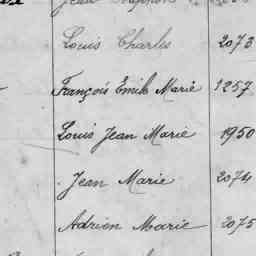 Louis Charles 2073
François Emile Marie 1257
Louis Jean Marie 1950
Jean Marie 2074
Adrien Marie 2075